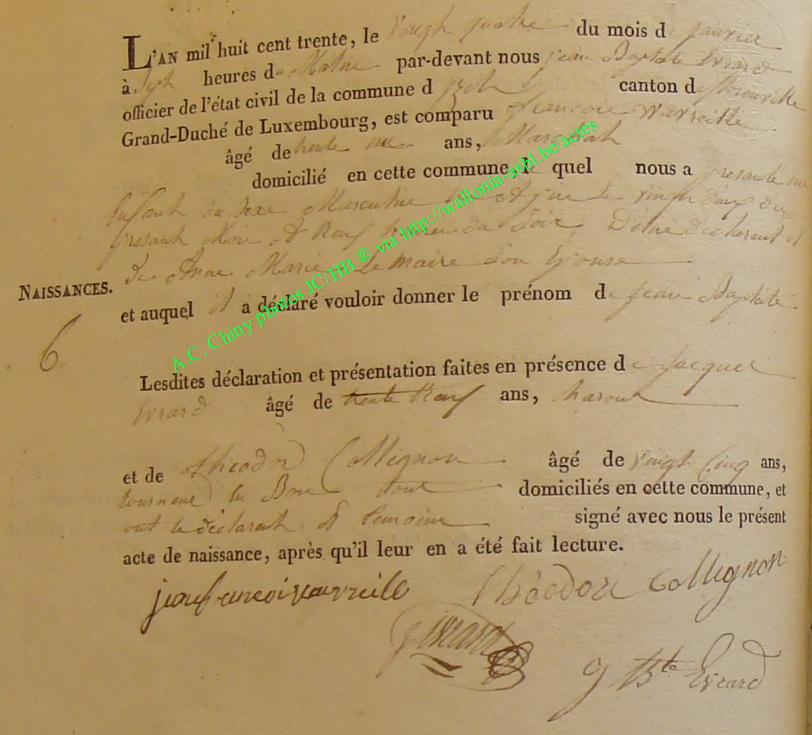 L'AN mil huit cent trente, le Vingt quatre du mois de janvier
à Sept heures du Matin par-devant nous jean Baptiste Evrard
officier de l'état civil de la commune d'izel canton de florenville
Grand-Duché de Luxembourg, est comparu francois Watreille
âgé de trente ans, Marechal
domicilié en cette commune le quel nous a presente un
Enfant du sexe Masculin né le vingt deux du
presant Mois A neuf heures du Soir De lui declarant et
de Anne Marie Lemaire Son Epouse
NAISSANCES. et auquel il a déclaré vouloir donner le prénom de jean Baptiste
6
Lesdites déclaration et présentation faites en présence de Jacques
Evrard âgé de trente neuf ans,
et de Théodor Collignon âgé de vingt Cinq ans,
tourneur en Bois tous domiciliés en cette commune, et
ont le declarant et temoins signé avec nous le présent
acte de naissance, après qu'il leur en a été fait lecture.
Théodore Collignon
j Evrard
j Bte Evrard
A.C. Chiny photos JC/HH ® via http://wallonia-asbl.be/actes